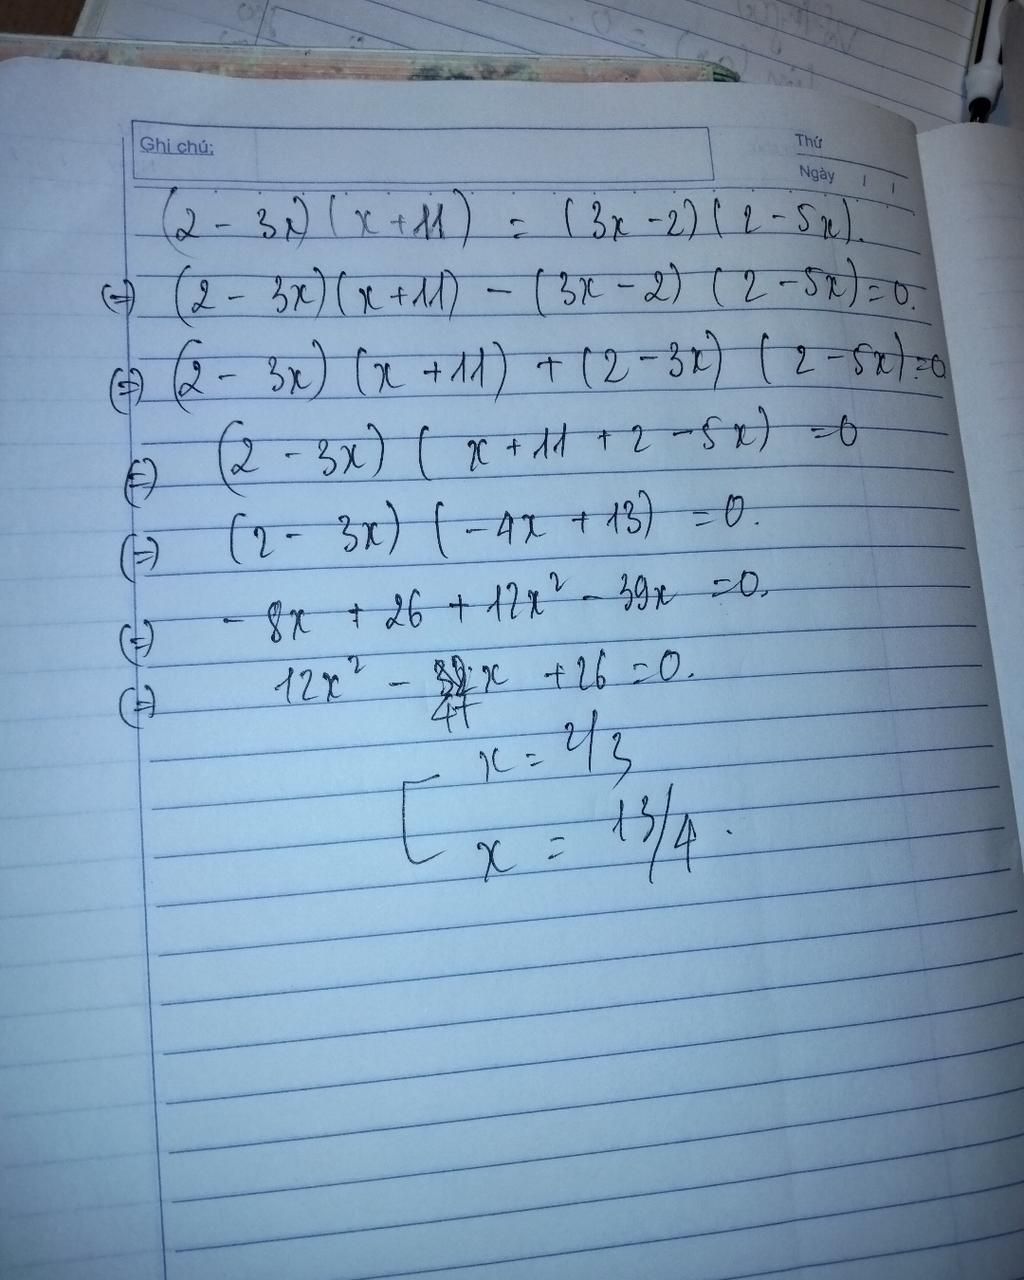 Ghi chú:
Thứ
Ngày / /
(2 - 3x)(x+11) = (3x-2)(2-5x).
(=) (2 - 3x)(x+11) - (3x-2)(2-5x)=0.
(=) (2 - 3x)(x+11) + (2-3x)(2-5x)=0
(=) (2 - 3x)(x+11+2-5x) =0
(=) (2 - 3x)(-4x+13) =0.
(=) - 8x + 26 + 12x² - 39x =0.
(=) 12x² - 47x +26 =0.
x = 2/3
x = 13/4.